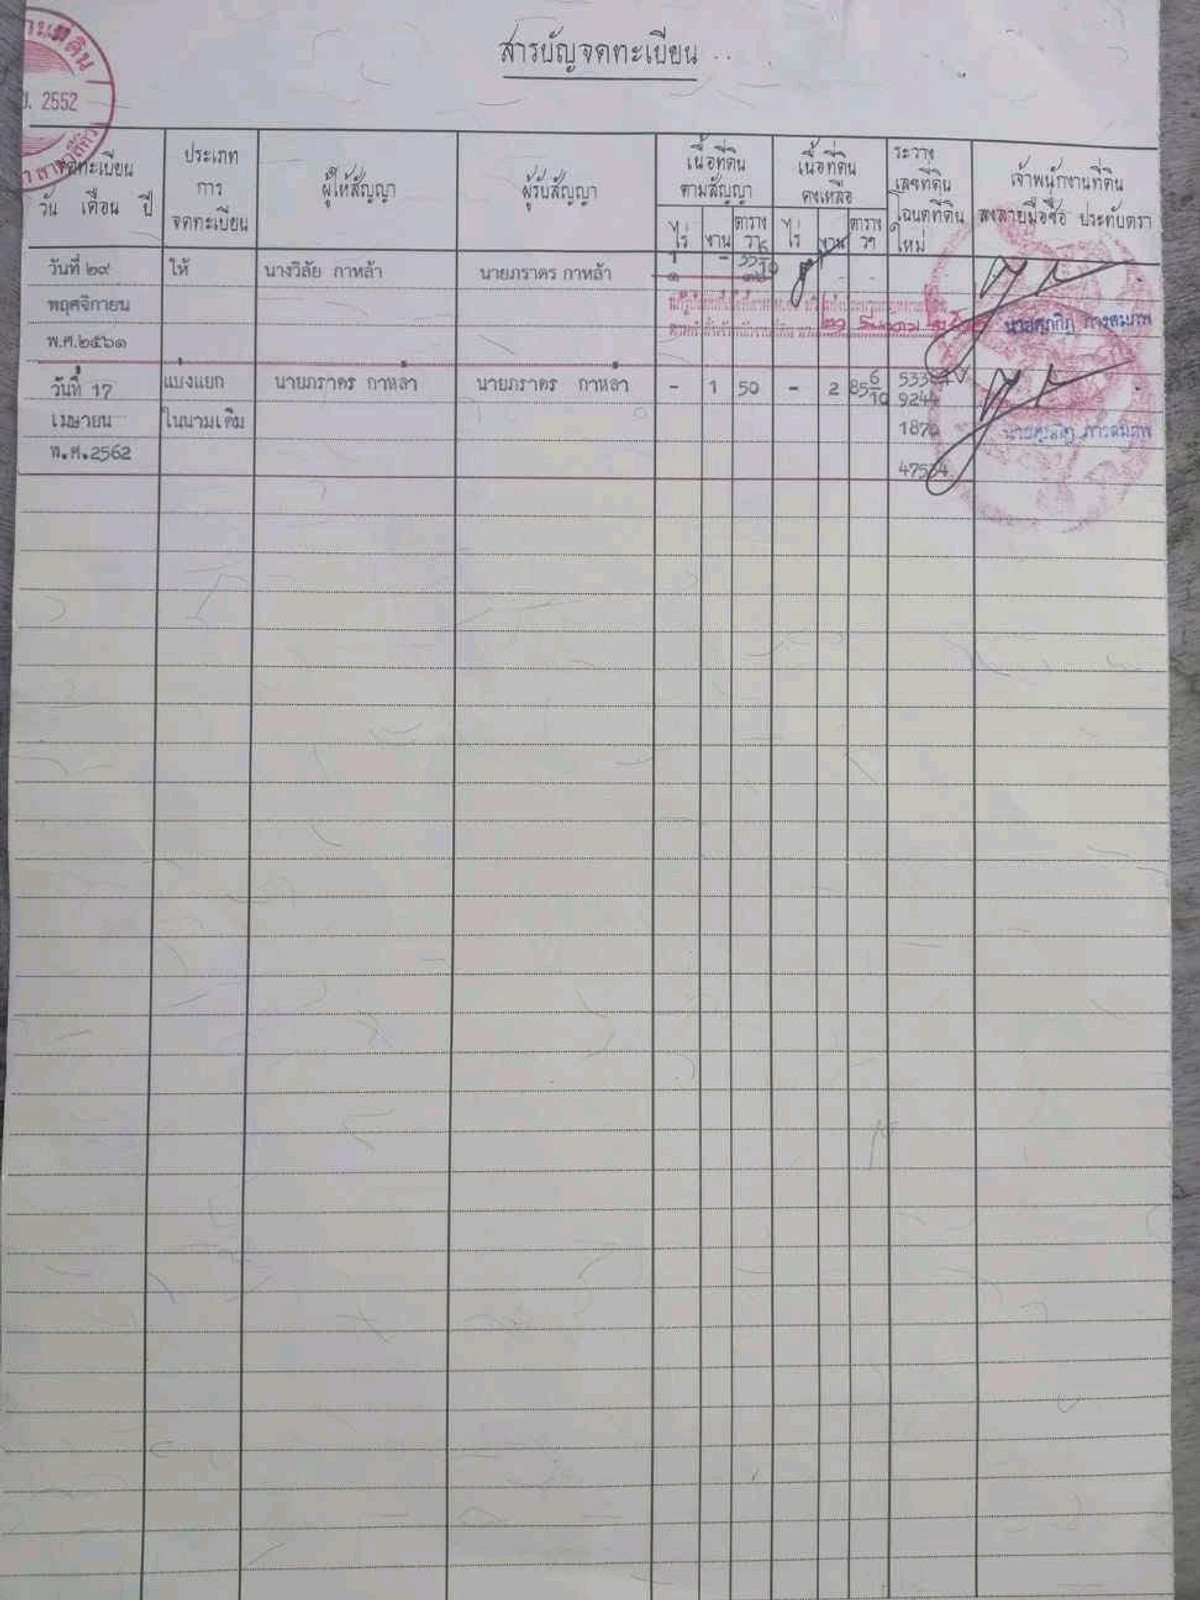 สารบัญจดทะเบียน
2552
จดทะเบียน
วัน เดือน ปี
ประเภท
การ
จดทะเบียน
ผู้ให้สัญญา
ผู้รับสัญญา
เนื้อที่ดิน
ตามสัญญา
ไร่ งาน ตาราง
วา
เนื้อที่ดิน
คงเหลือ
ไร่ งาน ตาราง
วา
ระวาง
เลขที่ดิน
โฉนดที่ดิน
ใหม่
เจ้าพนักงานที่ดิน
ลงลายมือชื่อ ประทับตรา
วันที่ ๒๙ ให้ นางวิลัย กาหล้า นายภราดร กาหล้า
พฤศจิกายน
พ.ศ.๒๕๖๑
วันที่ 17 แบ่งแยก นายภราดร กาหลา นายภราดร กาหลา - 1 50 - 2 85 6/10
9244
เมษายน ในนามเดิม
พ.ศ.2562